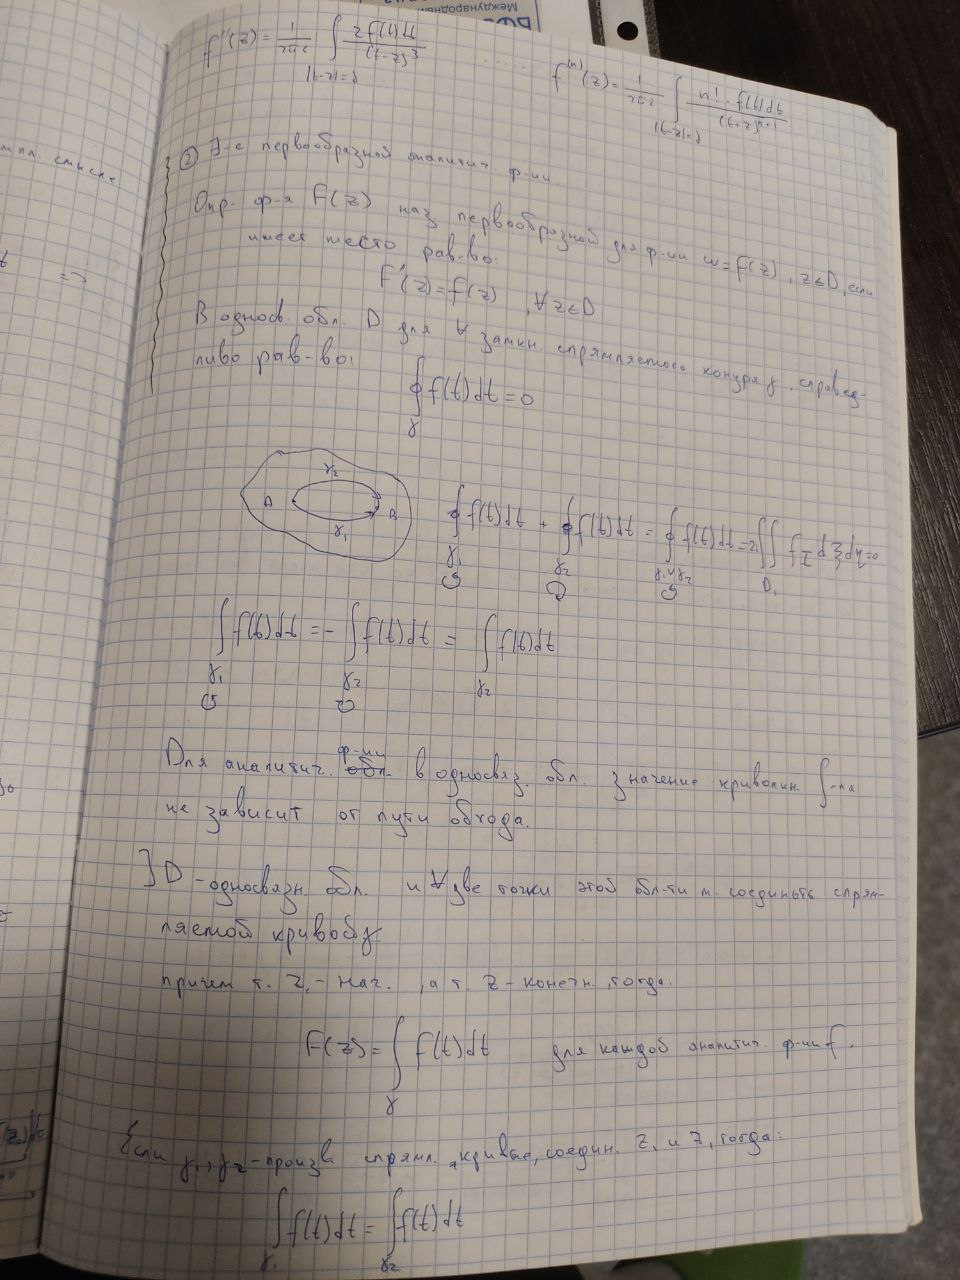 Международный
f''(z) = 1/2πi ∫_{|t-z|=δ} 2f(t)dt/(t-z)^3 ..... f^{(n)}(z) = 1/2πi ∫_{|t-z|=δ} n!·f(t)dt/(t-z)^{n+1}
② Э-е первообразной аналитич. ф-ии.
Опр. ф-я F(z) наз. первообразной для ф-ии w=f(z), z∈D, если
имеет место рав-во:
F'(z)=f(z), ∀z∈D
В односв. обл. D для ∀ замкн. спрямляемого конура γ справед-
ливо рав-во:
∮_γ f(t)dt=0
γ₂
A B
γ₁
∮_{γ₁} f(t)dt + ∮_{γ₂} f(t)dt = ∮_{γ₁∪γ₂} f(t)dt = 2i ∬_{D₁} f_{\bar{z}} dξdη=0
∫_{γ₁} f(t)dt = - ∫_{γ₂} f(t)dt = ∫_{γ₂} f(t)dt
Для аналитич. ф-ии в односвяз. обл. значение криволин. ∫-ла
не зависит от пути обхода.
] D - односвязн. обл. и ∀ две точки этой обл-ти м. соединить спрям-
ляемой кривой γ
причем т. z₁ - нач., а т. z - конечн., тогда:
F(z) = ∫_γ f(t)dt для каждой аналитич. ф-ии f.
Если γ₁, γ₂ - произв. спрямл. кривые, соедин. z₁ и z, тогда:
∫_{γ₁} f(t)dt = ∫_{γ₂} f(t)dt